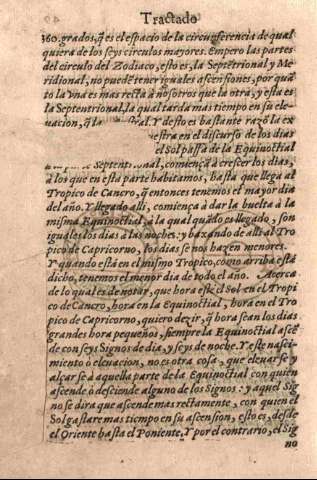 Tractado
360. grados, q̃ es el espacio de la circunferencia de qual
quiera de los seys circulos mayores. Empero las partes
del circulo del Zodiaco, esto es, la Septẽtrional y Me
ridional, no puedẽ tener iguales ascensiones, por quã
to la vna es mas recta à nosotros que la otra, y esta es
la Septentrional, la qual tarda mas tiempo en su ele-
uacion, q̃ la al. Y desto es bastante razõ la ex
estra en el discurso de los dias
el Sol passa de la Equinoctial
Septentrional, comiença à crescer los dias,
à los que en esta parte habitamos, hasta que llega al
Tropico de Cancro, q̃ entonces tenemos el mayor dia
del año. Y llegado alli, comiença à dar la buelta à la
misma Equinoctial, à la qual quãdo es llegado, son
iguales los dias à las noches: y baxando de alli al Tro
pico de Capricorno, los dias se nos hazen menores.
Y quando està en el mismo Tropico, como arriba està
dicho, tenemos el menor dia de todo el año. Acerca
de lo qual es de notar, que hora estè el Sol en el Tropi
co de Cancro, hora en la Equinoctial, hora en el Tro
pico de Capricorno, quiero dezir, q̃ hora sean los dias
grandes hora pequeños, siempre la Equinoctial asciẽ
de con seys Signos de dia, y seys de noche. Y este nasci-
miento ò eleuacion, no es otra cosa, que eleuarse y
alçarse à aquella parte de la Equinoctial con quien
asciende ò desciende alguno de los Signos: y aquel Sig
no se dira que asciende mas rectamente, con quien el
Sol gastare mas tiempo en su ascension, esto es, desde
el Oriente hasta el Poniente, Y por el contrario, el Sig
no